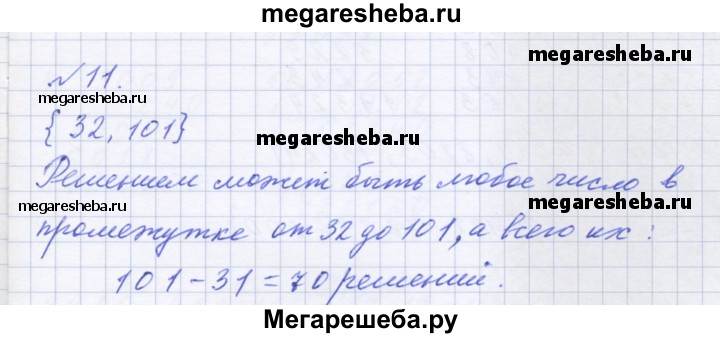 megaresheba.ru
megaresheba.ru
№11.
megaresheba.ru
{32, 101}
megaresheba.ru
Решением может быть любое число в
megaresheba.ru
megaresheba.ru
промежутке от 32 до 101, а всего их:
101 - 31 = 70 решений.
Мегарешеба.ру